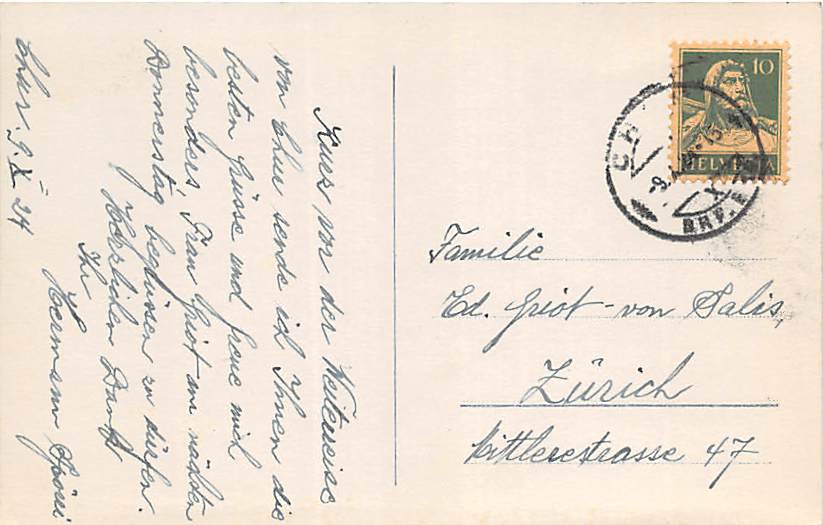 Chur. 9. X. 24
Kurz vor der Weiterreise
von Chur sende ich Ihnen die
besten Grüsse und freue mich
besonders, Frau Griot am nächsten
Donnerstag begrüssen zu dürfen.
Herzlichen Dank
Ihr
Hermann
10
HELVETIA
CH
BRF.
Familie
Ed. Griot-von Salis,
Zürich
Mittlerestrasse 47